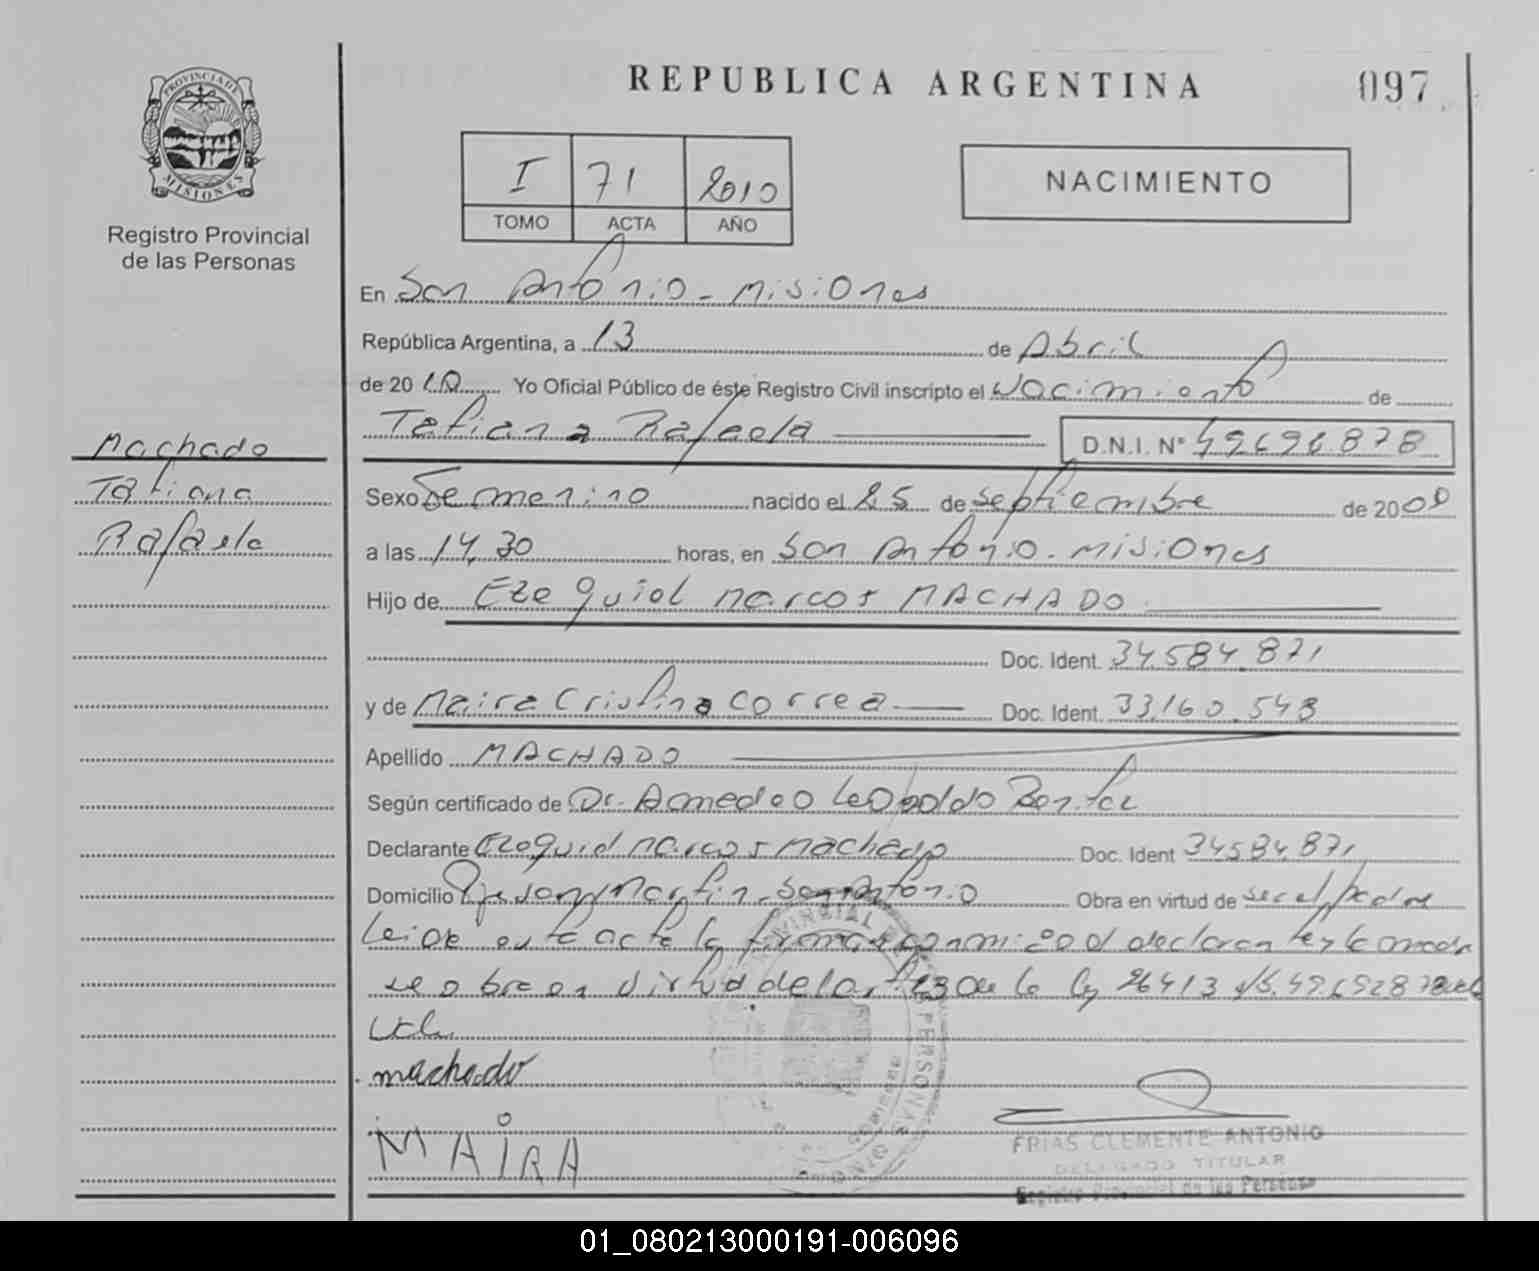 REPUBLICA ARGENTINA
097
PROVINCIA DE MISIONES
Registro Provincial
de las Personas
I 71 2010
TOMO ACTA AÑO
NACIMIENTO
En San Antonio - Misiones
República Argentina, a 13 de Abril
de 2010 Yo Oficial Público de éste Registro Civil inscripto el Nacimiento de
Tatiana Rafaela D.N.I. N° 49696.878
Machado
Tatiana
Rafaela
Sexo Femenino nacido el 25 de Septiembre de 2009
a las 14,30 horas, en San Antonio - Misiones
Hijo de Ezequiel Marcos MACHADO
Doc. Ident. 34.584.871
y de Maira Cristina Correa Doc. Ident. 33.160.543
Apellido MACHADO
Según certificado de Dr. Amedeo Leopoldo
Declarante Ezequiel Marcos Machado Doc. Ident 34584.871
Domicilio San Martin - San Antonio Obra en virtud de ser el padre
Leida esta acta la firman conmigo el declarante y la madre
se obra en virtud del art. de la ley 26413
machado
MAIRA
FRIAS CLEMENTE ANTONIO
DELEGADO TITULAR
Registro Provincial de las Personas
01_080213000191-006096